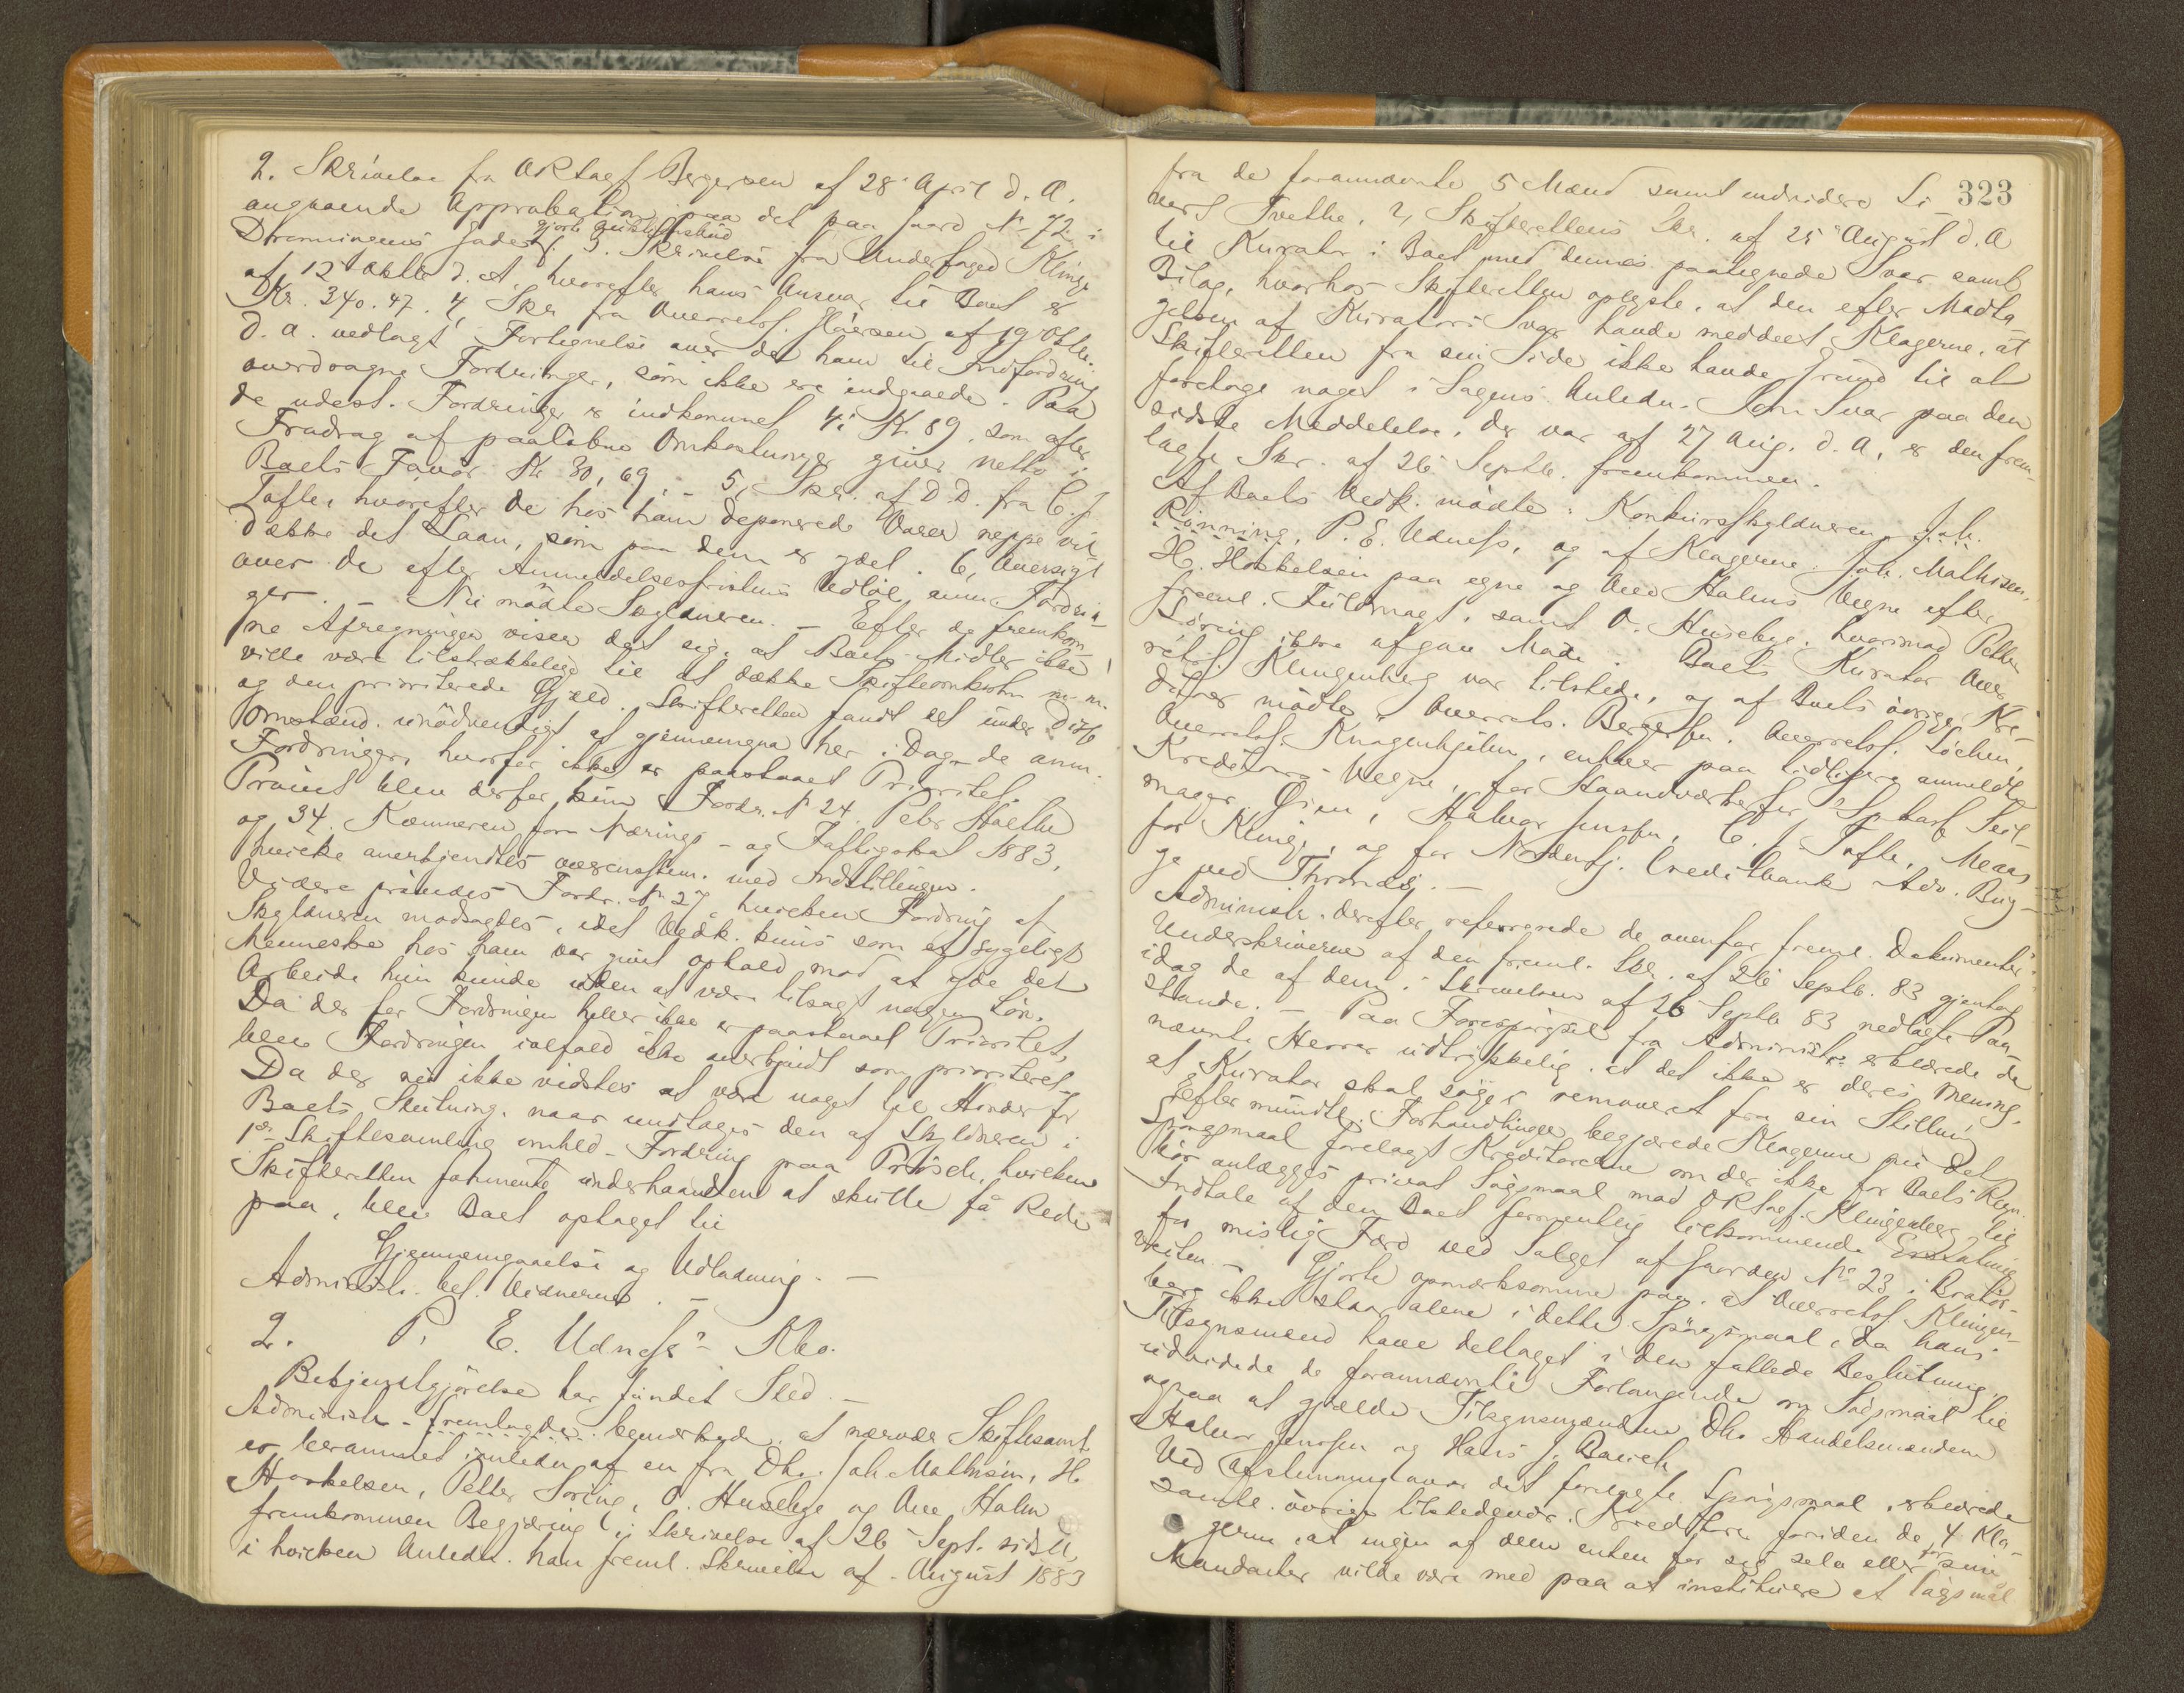 2. Skrivelse fra ORsagf. Bergersen af 28 April d. A.
angaaende Approbation paa det paa Gaard No 72 i
Dronningens Gade gjorte Auktionsbud
3. Skrivelse fra Underfoged Klinge
af 12 Oktb. d. A. hvorefter hans Ansvar til Boet er
Kr. 340.47. 4, Skr. fra Overretss. Hansen af 19 Oktb.
d. A. vedlagt Fortegnelse over de ham til Indfordring
overdragne Fordringer, som ikke ere indgaaede. Paa
de udest. Fordringer er indkommet Kr 89, som efter
Fradrag af paaløbne Omkostninger giver netto i
Boets Favør Kr 30,69. - 5, Skr. af D.D. fra C. J.
Tofte, hvorefter de hos ham deponerede Varer neppe vil
dække det Laan, som paa dem er ydet. 6, Oversigt
over de efter Anmeldelsesfristens Udløb anm. Fordrin-
ger. - Nu mødte Skyldneren. - Efter de fremkom-
ne Afregninger viser det sig, at Boets Midler ikke
ville være tilstrækkelige til at dække Skifteomkostn. m. m.
og den prioriterede Gjæld. Skifteretten fandt det under disse
Omstænd. unødvendigt at gjennemgaa her i Dag de anm.
Fordringer, hvorfor ikke er paastaaet Prioritet.
Prøvet blev derfor kun Fordr. No 24. Peter Sæther
og 34. Kæmneren for Nærings- og Fattigskat 1883,
hvilke anerkjendtes overensstem. med Indstillingen.
Videre prøvedes Fordr. No 27, hvilken Fordring af
Skyldneren modsagdes, idet Vedk. kuns som et sygeligt
Menneske hos ham var givet ophold mod at yde det
Arbeide hun kunde uden at være tilsagt nogen Løn.
Da der for Fordringen heller ikke er paastaaet Prioritet,
blev Fordringen ialfald ikke anerkjendt som prioriteret.
Da der nu ikke vidstes at være noget til Hinder for
Boets Slutning, naar undtages den af Skyldneren i
1ste Skiftesamling omhdl. Fordring paa Prösch, hvilken
Skifteretten formente underhaanden at skulle få Rede
paa, blev Boet optaget til
Gjennemgaaelse og Udlodning. -
Administr. bel. Vidnerne. -
2. P. E. Udness's Kbo.
Bekjendtgjørelse har fundet Sted. -
Administr. fremlagde bemærkede, at nærvær. Skiftesaml.
er berammet i Anledn. af en fra Dhrr. Joh. Mathisen, H.
Haakelsen, Petter Soring, O. Husebye og Ove Halm
fremkommen Begjæring i Skrivelse af 26 Sept. sidstl.,
i hvilken Anledn. han freml. Skrivelse af - August 1883
323
fra de forannævnte 5 Mænd samt endvidere Si-
vert Tvethe. 2, Skifterettens Skr. af 25 August d. A
til Kurator i Boet med dennes paategnede Svar samt
Bilag, hvorhos Skifteretten oplyste, at den efter Modta-
gelsen af Kurators Svar havde meddelt Klagerne, at
Skifteretten fra sin Side ikke havde Grund til at
foretage noget i Sagens Anledn. Som Svar paa den
sidste Meddelelse, der var af 27 Aug. d. A, er den frem-
lagte Skr. af 26 Septb. fremkommen.
Af Boets Vedk. mødte: Konkursskyldneren Joh.
Rönning, P. E. Udness, og af Klagerne Joh. Mathisen,
H. Haakelsen paa egne og Ove Halms Vegne efter
freml. Fuldmagt, samt O. Husebye, hvorimod Petter
Soring ikke afgav Møde. Boets Kurator Over-
retss. Klingenberg var tilstede, og af Boets øvrige Kre-
ditorer mødte Overrets. Bergersen, Overretss. Lóchen,
Overretss. Knagenhjelm, enhver paa tidligere anmeldte
Kreditors Vegne, for Haandværkerfor. Sparb. Seil-
mager Qien, Halvor Jenssen, C. J. Tofte, Maas
for Klinge, og for Nordenfj. Creditbank Adv. Bug-
ge ved Thronds. -
Administr. derefter refererede de ovenfor freml. Dokumenter.
Underskriverne af den freml. Skr. af 26 Septb. 83 gjentog
idag de af dem i Skrivelsen af 26 Septb 83 nedlagte Paa-
stande. - Paa Forespørgsel fra Administr. erklærede de
nævnte Herrer udtrykkelig, at det ikke er deres Mening,
at Kurator skal søges removeret fra sin Stilling.
Efter mundtl. Forhandlinger begjærede Klagerne nu det
Spørgsmaal forelagt Kreditorerne om der ikke for Boets Regn.
bör anlægges privat Søgsmaal mod ORsagf. Klingenberg til
Indtale af den Boet formentlig tilkommende Erstatning
for mislig Færd ved Salget af Gaarden No 23 i Bratör-
veiten. - Gjorte opmærksomme paa, at Overretss. Klingen-
berg ikke staar alene i dette Spørgsmaal, da hans
Tilsynsmænd have deltaget i den fattede Beslutning,
udvidede de forannævnte Forlangende om Søgsmaal til
ogsaa at gjælde Tilsynsmændene Dhr. Handelsmændene
Halvor Jenssen og Hans J. Bauck.
Ved Afstemning over det forelagte Spørgsmaal, erklærede
samtl. øvrige tilstedevær. Kreditorer foruden de 4 Kla-
gerne, at ingen af dem enten for sig selv eller for sine
Mandanter vilde være med paa at instituere et Søgsmål